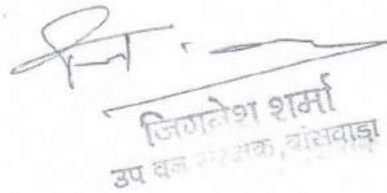 जिगनेश शर्मा
उप वन संरक्षक, बांसवाड़ा